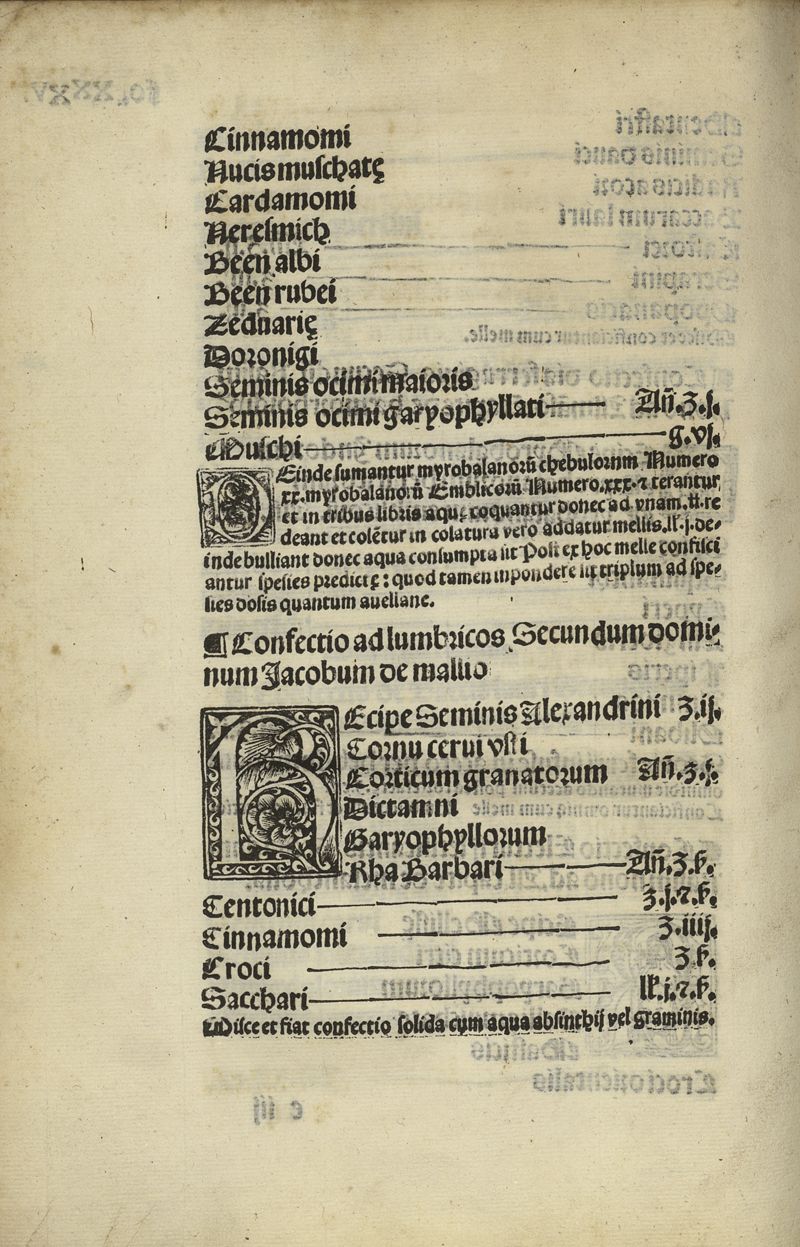 Cinnamomi
Nucis muschatę
Cardamomi
Neresmich
Been albi
Been rubei
Zeduarię
Doronigi
Seminis ocimi maioris
Seminis ocimi garyophyllati Añ.ʒ.j.
Muschi g.vj.
DEinde sumantur myrobalanorũ chebulorum Numero
xx. myrobalanorũ Emblicorũ Numero.xxx.⁊ terantur
et in tribus libris aquę coquantur donec ad vnam.tt.re
deant et colẽtur in colatura vero addatur mellis.lk.j.de-
inde bulliant donec aqua consumpta sit Post ex hoc melle confici
antur spesies predictę: quod tamen in pondere sit triplum ad spe-
sies dosis quantum auellane.
¶ Confectio ad lumbricos Secundum domi-
num Jacobum de malluo
REcipe Seminis Alexandrini ʒ.ij.
Cornu cerui vsti
Corticum granatorum Añ.ʒ.j.
Dictamni
Garyophyllorum
Rha Barbari Añ.ʒ.ß.
Centonici ʒ.j.⁊.ß.
Cinnamomi ʒ.iiij.
Croci ʒ.ß.
Sacchari lk.j.⁊.ß.
Misce et fiat confectio solida cum aqua absinthij vel graminis.